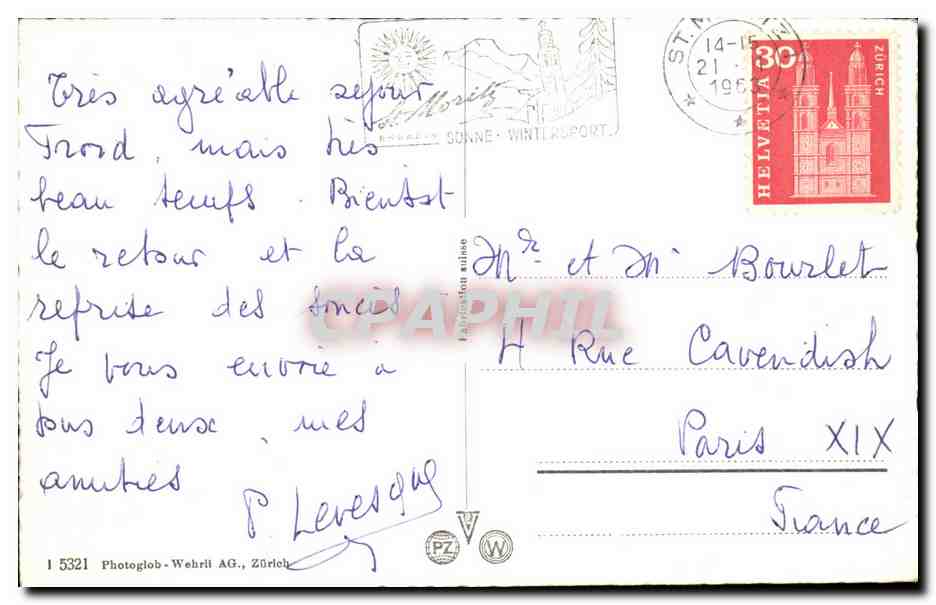 Très agréable séjour
Froid, mais très
beau temps. Bientôt
le retour et la
reprise des soucis
Je vous envoie à
tous deux, mes
amitiés
P. Levesque
1 5321 Photoglob-Wehrli AG., Zürich
St. Moritz
SONNE · WINTERSPORT.
ST. M
14-15
21
1963
30
HELVETIA
ZÜRICH
Fabrication suisse
CPAPHIL
Mr et Mr Bourlet
4 Rue Cavendish
Paris XIX
France
PZ
W